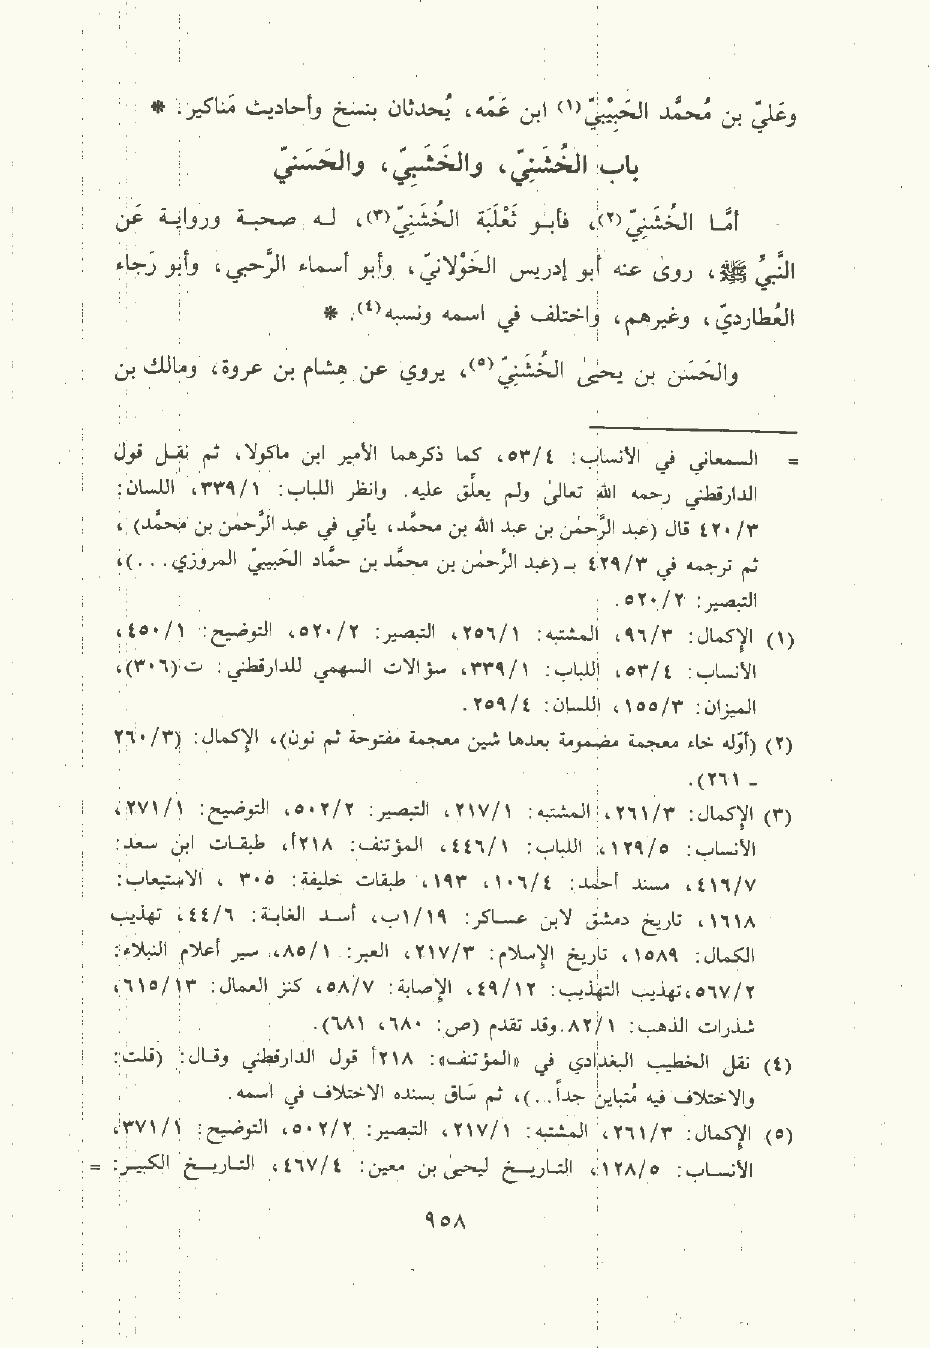 وعَليّ بن مُحمَّد الحَبِيْبِيّ(١) ابن عَمِّه، يُحدثان بنسخ وأحاديث مَناكير. *
باب الخُشَنِيّ، والخَشَبِيّ، والحَسَنيّ
أمَّا الخُشَنِيّ(٢)، فأبو ثَعْلَبَة الخُشَنِيّ(٣)، له صحبة ورواية عَن
النَّبيُ ﷺ، روىٰ عنه أبو إدريس الخَوْلانيّ، وأبو أسماء الرَّحبي، وأبو رَجاء
العُطارديّ، وغيرهم، واختلف في اسمه ونسبه(٤). *
والحَسَن بن يحيىٰ الخُشَنِيّ(٥)، يروي عن هِشام بن عروة، ومالك بن
= السمعاني في الأنساب: ٥٣/٤، كما ذكرهما الأمير ابن ماكولا، ثم نقل قول
الدارقطني رحمه الله تعالىٰ ولم يعلِّق عليه. وانظر اللباب: ٣٣٩/١، اللسان:
٤٢٠/٣ قال (عبد الرَّحمٰن بن عبد الله بن محمَّد، يأتي في عبد الرَّحمٰن بن محمَّد)،
ثم ترجمه في ٤٢٩/٣ بـ (عبد الرَّحمٰن بن محمَّد بن حمَّاد الحَبيبيّ المروزي...)،
التبصير: ٥٢٠/٢.
(١) الإكمال: ٩٦/٣، المشتبه: ٢٥٦/١، التبصير: ٥٢٠/٢، التوضيح: ٤٥٠/١،
الأنساب: ٥٣/٤، اللباب: ٣٣٩/١، سؤالات السهمي للدارقطني: ت(٣٠٦)،
الميزان: ١٥٥/٣، اللسان: ٢٥٩/٤.
(٢) (أوّله خاء معجمة مضمومة بعدها شين معجمة مفتوحة ثم نون)، الإكمال: (٢٦٠/٣
ـ ٢٦١).
(٣) الإكمال: ٢٦١/٣، المشتبه: ٢١٧/١، التبصير: ٥٠٢/٢، التوضيح: ٢٧١/١،
الأنساب: ١٢٩/٥، اللباب: ٤٤٦/١، المؤتنف: ٢١٨أ، طبقات ابن سعد:
٤١٦/٧، مسند أحمد: ١٠٦/٤، ١٩٣، طبقات خليفة: ٣٠٥ ، الاستيعاب:
١٦١٨، تاريخ دمشق لابن عساكر: ١/١٩ب، أسد الغابة: ٤٤/٦، تهذيب
الكمال: ١٥٨٩، تاريخ الإسلام: ٢١٧/٣، العبر: ٨٥/١، سير أعلام النبلاء:
٥٦٧/٢،تهذيب التهذيب: ٤٩/١٢، الإصابة: ٥٨/٧، كنز العمال: ٦١٥/١٣،
شذرات الذهب: ٨٢/١.وقد تقدم (ص: ٦٨٠، ٦٨١).
(٤) نقل الخطيب البغدادي في «المؤتنف»: ٢١٨أ قول الدارقطني وقال: (قلت:
والاختلاف فيه مُتباين جداً...)، ثم سَاق بسنده الاختلاف في اسمه.
(٥) الإكمال: ٢٦١/٣، المشتبه: ٢١٧/١، التبصير: ٥٠٢/٢، التوضيح: ٣٧١/١،
الأنساب: ١٢٨/٥، التاريخ ليحيىٰ بن معين: ٤٦٧/٤، التاريخ الكبير: =
٩٥٨